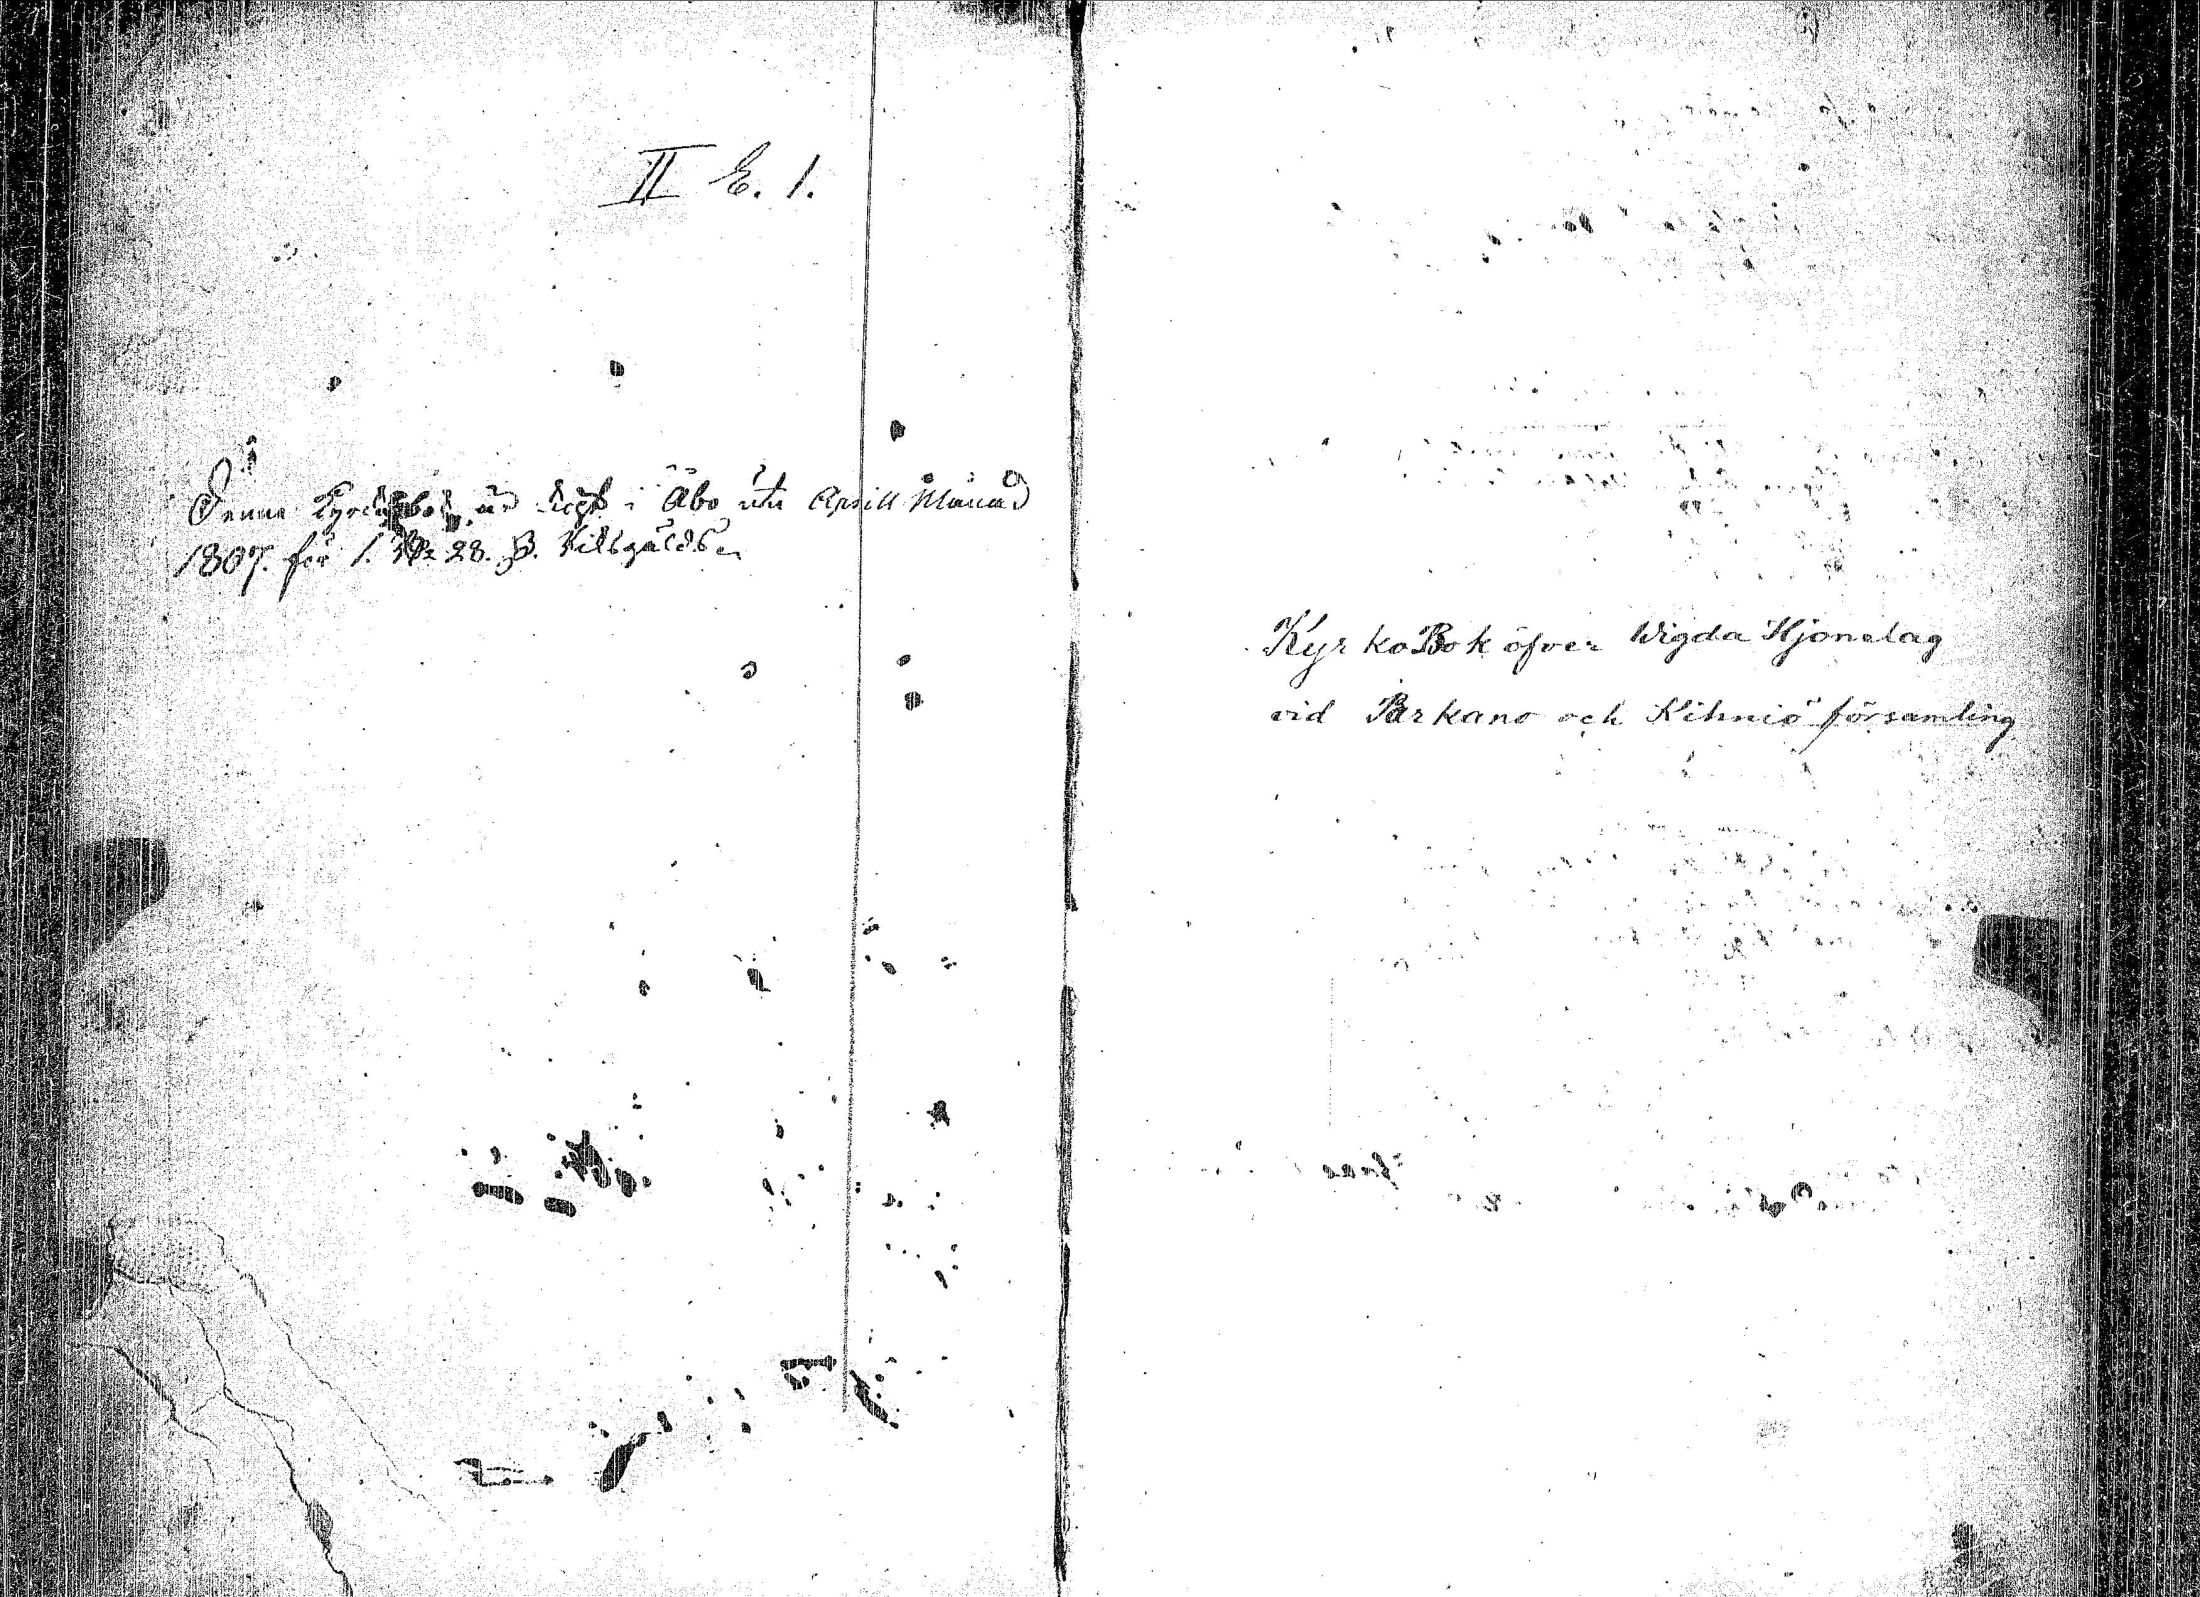 II E. 1.
Denna Kyrckobok är köpt i Åbo uti Aprill Månad
1807. för 1. Rdr 28. ß. Riksgälds
KyrkoBok öfver Wigda Hjonelag
vid Parkano och Kihniö församling